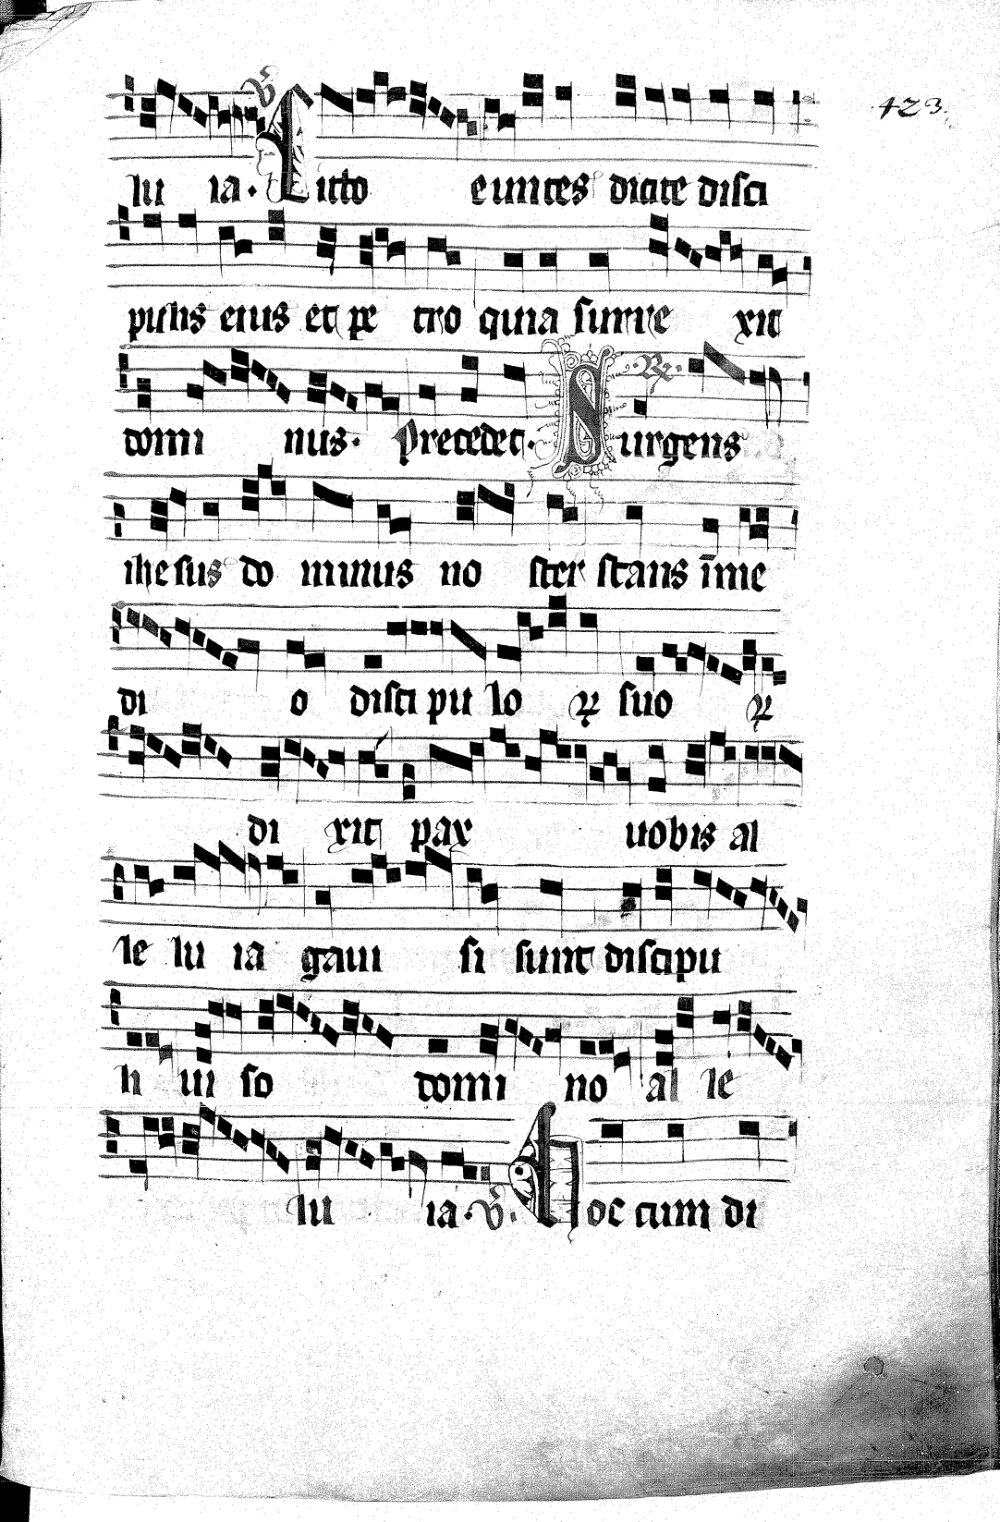 423.
lu ia. V Cito euntes dicite disci
pulis eius et pe tro quia surre xit
domi nus. Precedet. R. Surgens
ihesus do minus no ster stans īme
di o disci pu lo ꝝ suo ꝝ
di xit pax uobis al
le lu ia gaui si sunt discipu
li ui so domi no al le
lu ia. V. Hec cum di